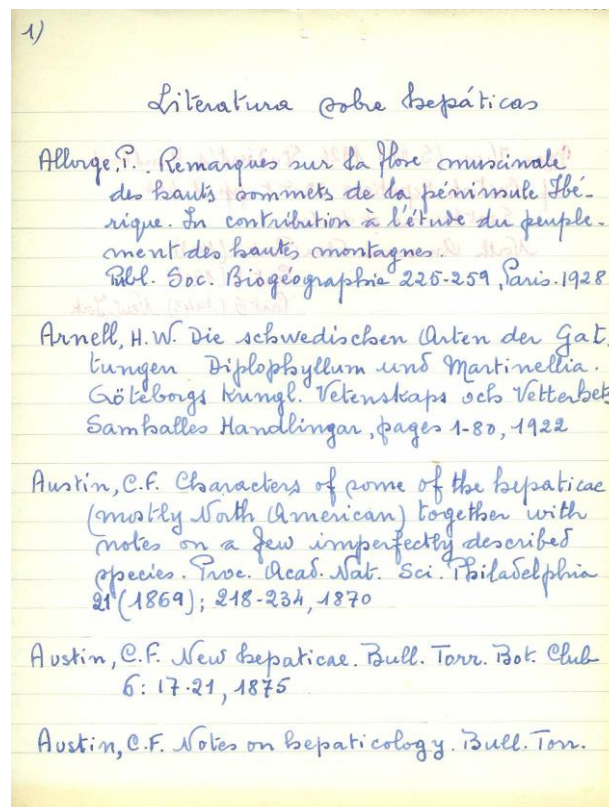 1)
Literatura sobre hepáticas
Allorge, P. . Remarques sur la flore muscinale
des hauts sommets de la péninsule Ibé-
rique. In contribution à l'étude du peuple-
ment des hautes montagnes.
Publ. Soc. Biogéographie 225-259, Paris. 1928
Arnell, H.W. Die schwedischen Arten der Gat.
tungen Diplophyllum und Martinellia.
Göteborgs Kungl. Vetenskaps och Vetterhets
Samhalles Handlingar, pages 1-80, 1922
Austin, C.F. Characters of some of the hepaticae
(mostly North American) together with
notes on a few imperfectly described
species. Proc. Acad. Nat. Sci. Philadelphia
21 (1869); 218-234, 1870
Austin, C.F. New hepaticae. Bull. Torr. Bot. Club
6: 17-21, 1875
Austin, C.F. Notes on hepaticology. Bull. Torr.